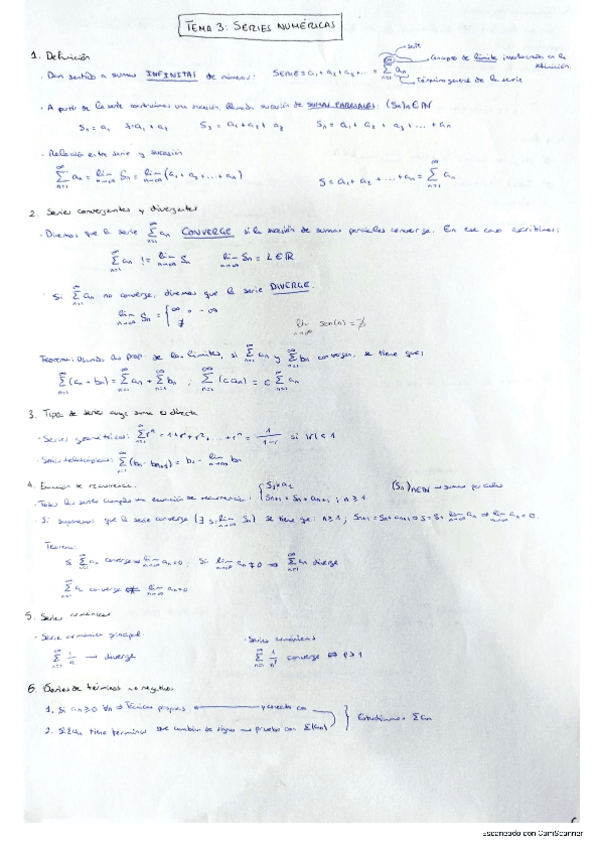 TEMA 3: SERIES NUMÉRICAS
1. Definición
serie
Concepto de límite involucrado en la definición.
· Dan sentido a sumas INFINITAS de números: SERIE = a₁ + a₂ + a₃ ... = ∑ₙ₌₁^∞ aₙ
Término general de la serie
· A partir de la serie construimos una sucesión, llamada sucesión de SUMAS PARCIALES: (Sₙ)n∈ℕ
S₁ = a₁ S₃ = a₁ + a₂ + a₃ Sₙ = a₁ + a₂ + a₃ + ... + aₙ
· Relación entre serie y sucesión
∑ₙ₌₁^∞ aₙ = lim n→∞ Sₙ = lim n→∞ (a₁ + a₂ + ... + aₙ) S = a₁ + a₂ + ... + aₙ = ∑ₙ₌₁^∞ aₙ
2. Series convergentes y divergentes
· Diremos que la serie ∑ₙ₌₁^∞ aₙ CONVERGE si la sucesión de sumas parciales converge. En ese caso escribimos:
∑ₙ₌₁^∞ aₙ != lim n→∞ Sₙ lim n→∞ Sₙ = L ∈ ℝ
· Si ∑ₙ₌₁^∞ aₙ no converge, diremos que la serie DIVERGE.
lim n→∞ Sₙ = { ∞ o -∞
∄
lim n→∞ sen(n) = ∄
Teorema: prop. de los límites, si ∑ₙ₌₁^∞ aₙ y ∑ₙ₌₁^∞ bₙ convergen, se tiene que:
∑(aₙ + bₙ) = ∑ aₙ + ∑ bₙ ; ∑(c aₙ) = c ∑ aₙ
3. Tipos de series cuya suma es directa
· Series geométricas: ∑ rⁿ = 1 + r + r² + ... + rⁿ = 1/(1-r) si |r| < 1
· Series telescópicas: ∑(bₙ - bₙ₊₁) = b₁ - lim n→∞ bₙ
4. Ecuación de recurrencia.
(Sₙ)n∈ℕ → sumas parciales
· Todas las series cumplen una ecuación de recurrencia: { Sₙ₊₁ = Sₙ + aₙ₊₁ ; n ≥ 1
· Si suponemos que la serie converge (∃ S = lim Sₙ) se tiene que: n ≥ 1 ; Sₙ₊₁ = Sₙ + aₙ₊₁ ⇒ S = S + lim aₙ ⇒ lim aₙ = 0.
Teorema:
Si ∑ aₙ converge ⇒ lim n→∞ aₙ = 0 ; Si lim n→∞ aₙ ≠ 0 ⇒ ∑ aₙ diverge
∑ aₙ converge ⇍ lim n→∞ aₙ = 0
5. Series armónicas
· Serie armónica principal. · Series armónicas
∑ₙ₌₁^∞ 1/n → diverge ∑ₙ₌₁^∞ 1/nᵖ converge ⇔ p > 1
6. Series de términos no negativos
1. Si aₙ ≥ 0 ∀n ⇒ Técnicas propias
2. Si ∑aₙ tiene términos que cambian de signo → prueba con ∑|aₙ| } Estudiamos ∑aₙ
Escaneado con CamScanner